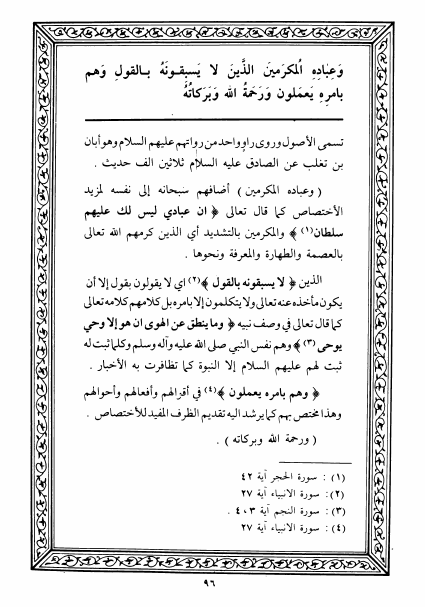 وَعِبادِهِ المُكرَمينَ الذَّينَ لا يَسبِقونَهُ بالقولِ وَهم
بامرِه يَعمَلون وَرَحمَةُ الله وَبَرَكاتُهُ
تسمى الأصول وروى راو واحد من رواتهم عليهم السلام وهو أبان
بن تغلب عن الصادق عليه السلام ثلاثين الف حديث .
( وعباده المكرمين ) أضافهم سبحانه إلى نفسه لمزيد
الأختصاص كما قال تعالى ﴿ ان عبادي ليس لك عليهم
سلطان(١) ﴾ والمكرمين بالتشديد أي الذين كرمهم الله تعالى
بالعصمة والطهارة والمعرفة ونحوها .
الذين ﴿ لا يسبقونه بالقول ﴾(٢) اي لا يقولون بقول إلا أن
يكون مأخذه عنه تعالى ولا يتكلمون إلا بامره بل كلامهم كلامه تعالى
كما قال تعالى في وصف نبيه ﴿ وما ينطق عن الهوى ان هو إلا وحي
يوحى (٣) ﴾ وهم نفس النبي صلى الله عليه وآله وسلم وكلما ثبت له
ثبت لهم عليهم السلام إلا النبوة كما تظافرت به الأخبار .
﴿ وهم بامره يعملون ﴾(٤) في أقوالهم وأفعالهم وأحوالهم
وهذا مختص بهم كما يرشد اليه تقديم الظرف المفيد للأختصاص .
( ورحمة الله وبركاته ) .
(١) : سورة الحجر آية ٤٢
(٢): سورة الانبياء آية ٢٧
(٣) : سورة النجم آية ٤،٣ .
(٤) : سورة الانبياء آية ٢٧
٩٦